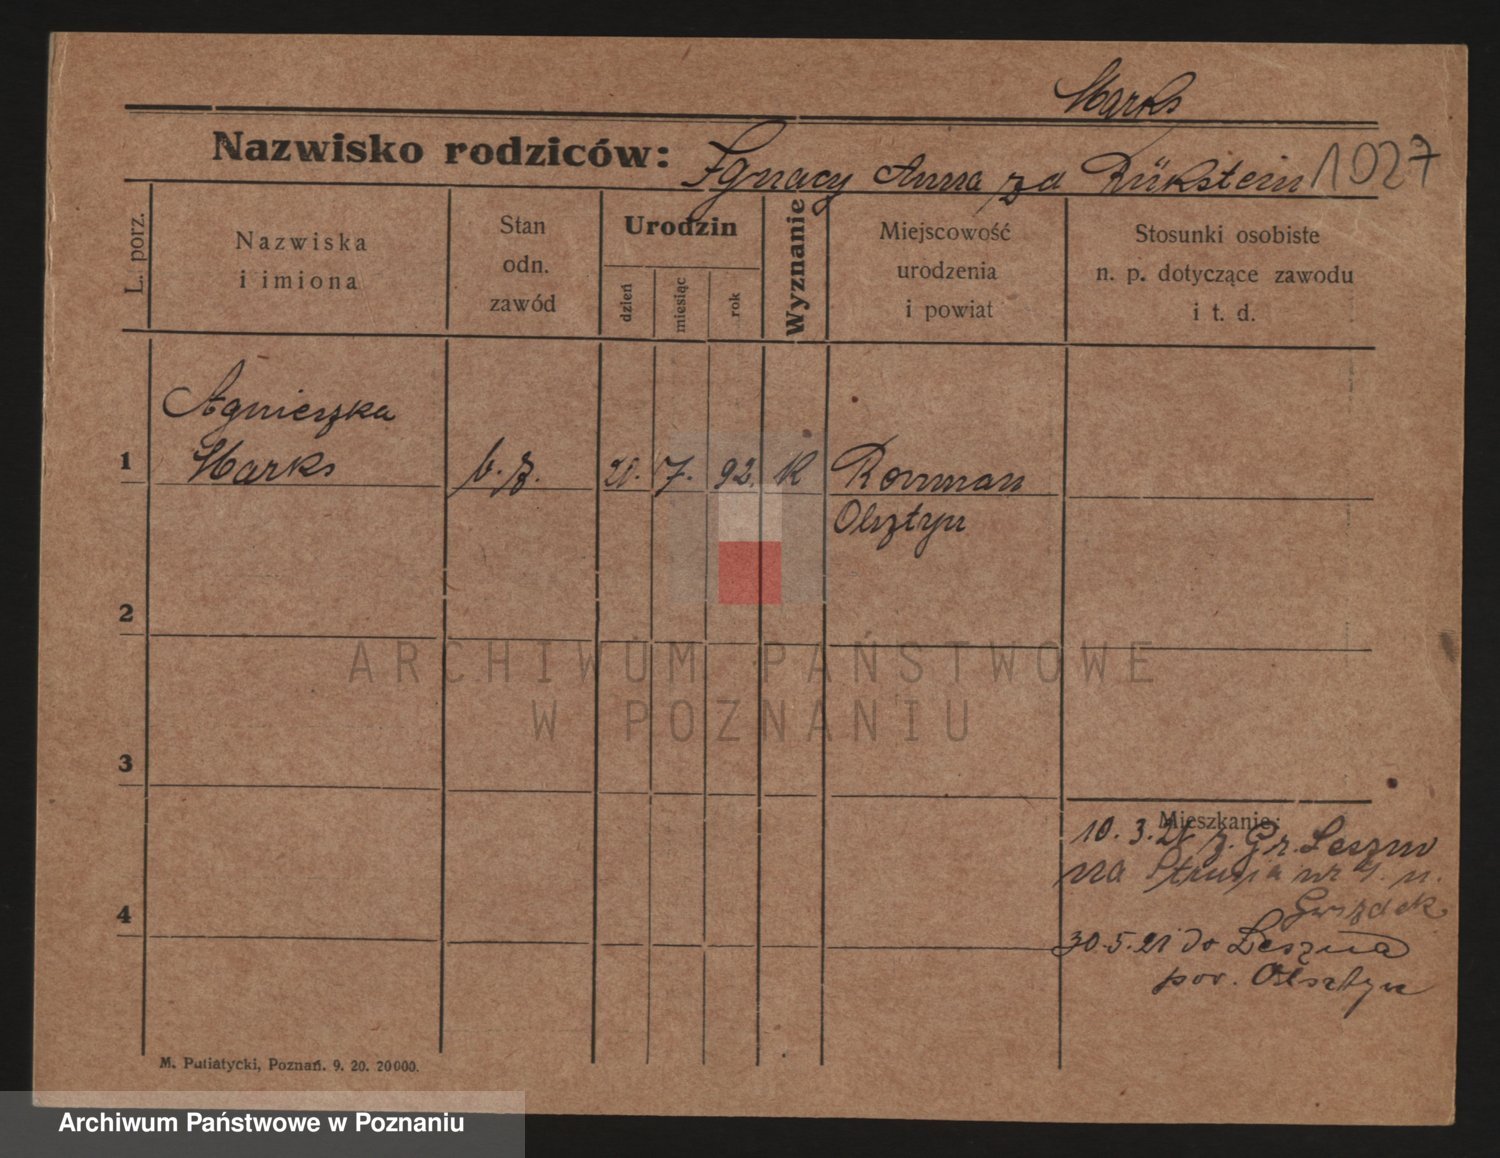 Marks
Nazwisko rodziców: Ignacy Anna za Rükstein 1027
L. porz.
Nazwiska
i imiona
Stan
odn.
zawód
Urodzin
dzień
miesiąc
rok
Wyznanie
Miejscowość
urodzenia
i powiat
Stosunki osobiste
n. p. dotyczące zawodu
i t. d.
Agnieszka
1 Marks b. z. 20. 7. 92. K
Olsztyn
2
ARCHIWUM PAŃSTWOWE
W POZNANIU
3
Mieszkanie:
10. 3. 21 z. Gr. Leszno
na Strusia nr 4. u.
4
30. 5. 21 do Leszna
pow. Olsztyn
M. Putiatycki, Poznań. 9. 20. 20000.
Archiwum Państwowe w Poznaniu